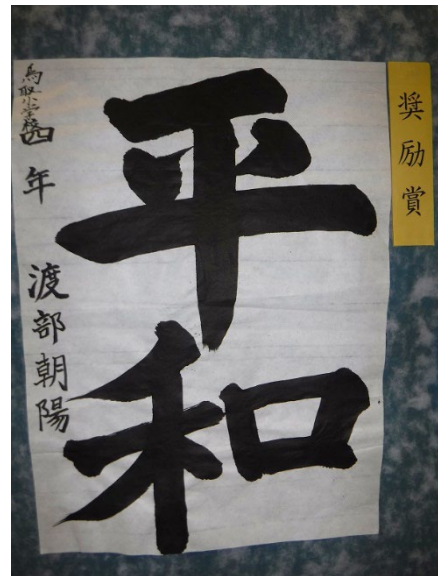 奨励賞
平和
鳥取小学校四年 渡部朝陽